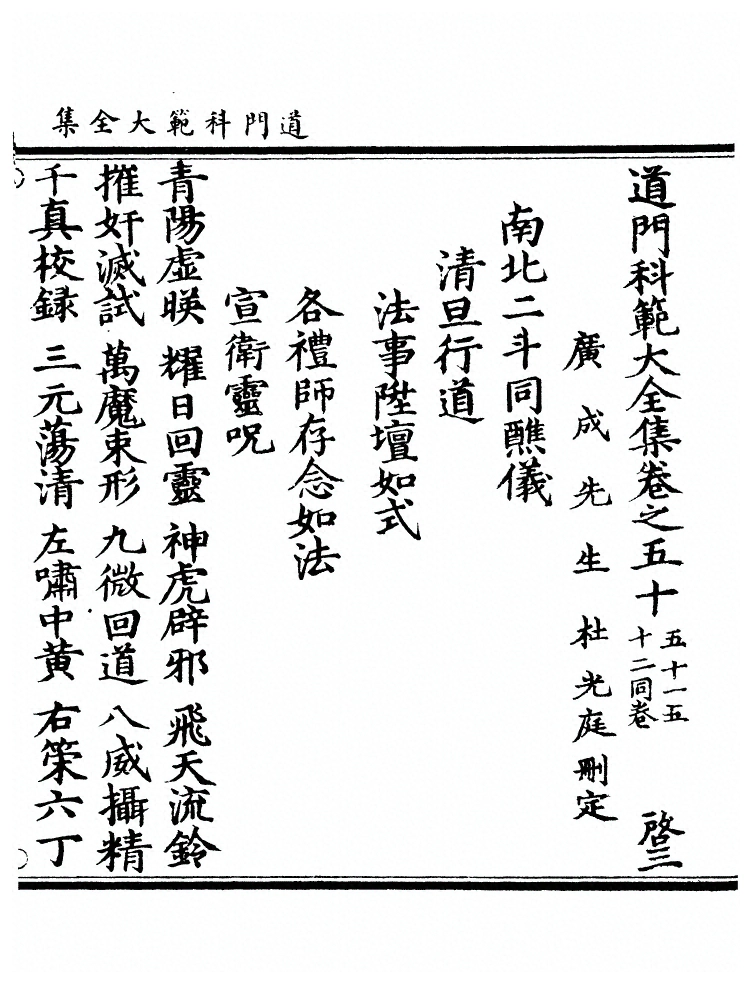 道門科範大全集
道門科範大全集卷之五十五十一五十二同卷 啓三
廣成先生杜光庭刪定
南北二斗同醮儀
清旦行道
法事陞壇如式
各禮師存念如法
宣衛靈呪
青陽虛暎 耀日回靈 神虎辟邪 飛天流鈴
摧奸滅試 萬魔束形 九微回道 八威攝精
千真校錄 三元蕩清 左嘯中黃 右策六丁